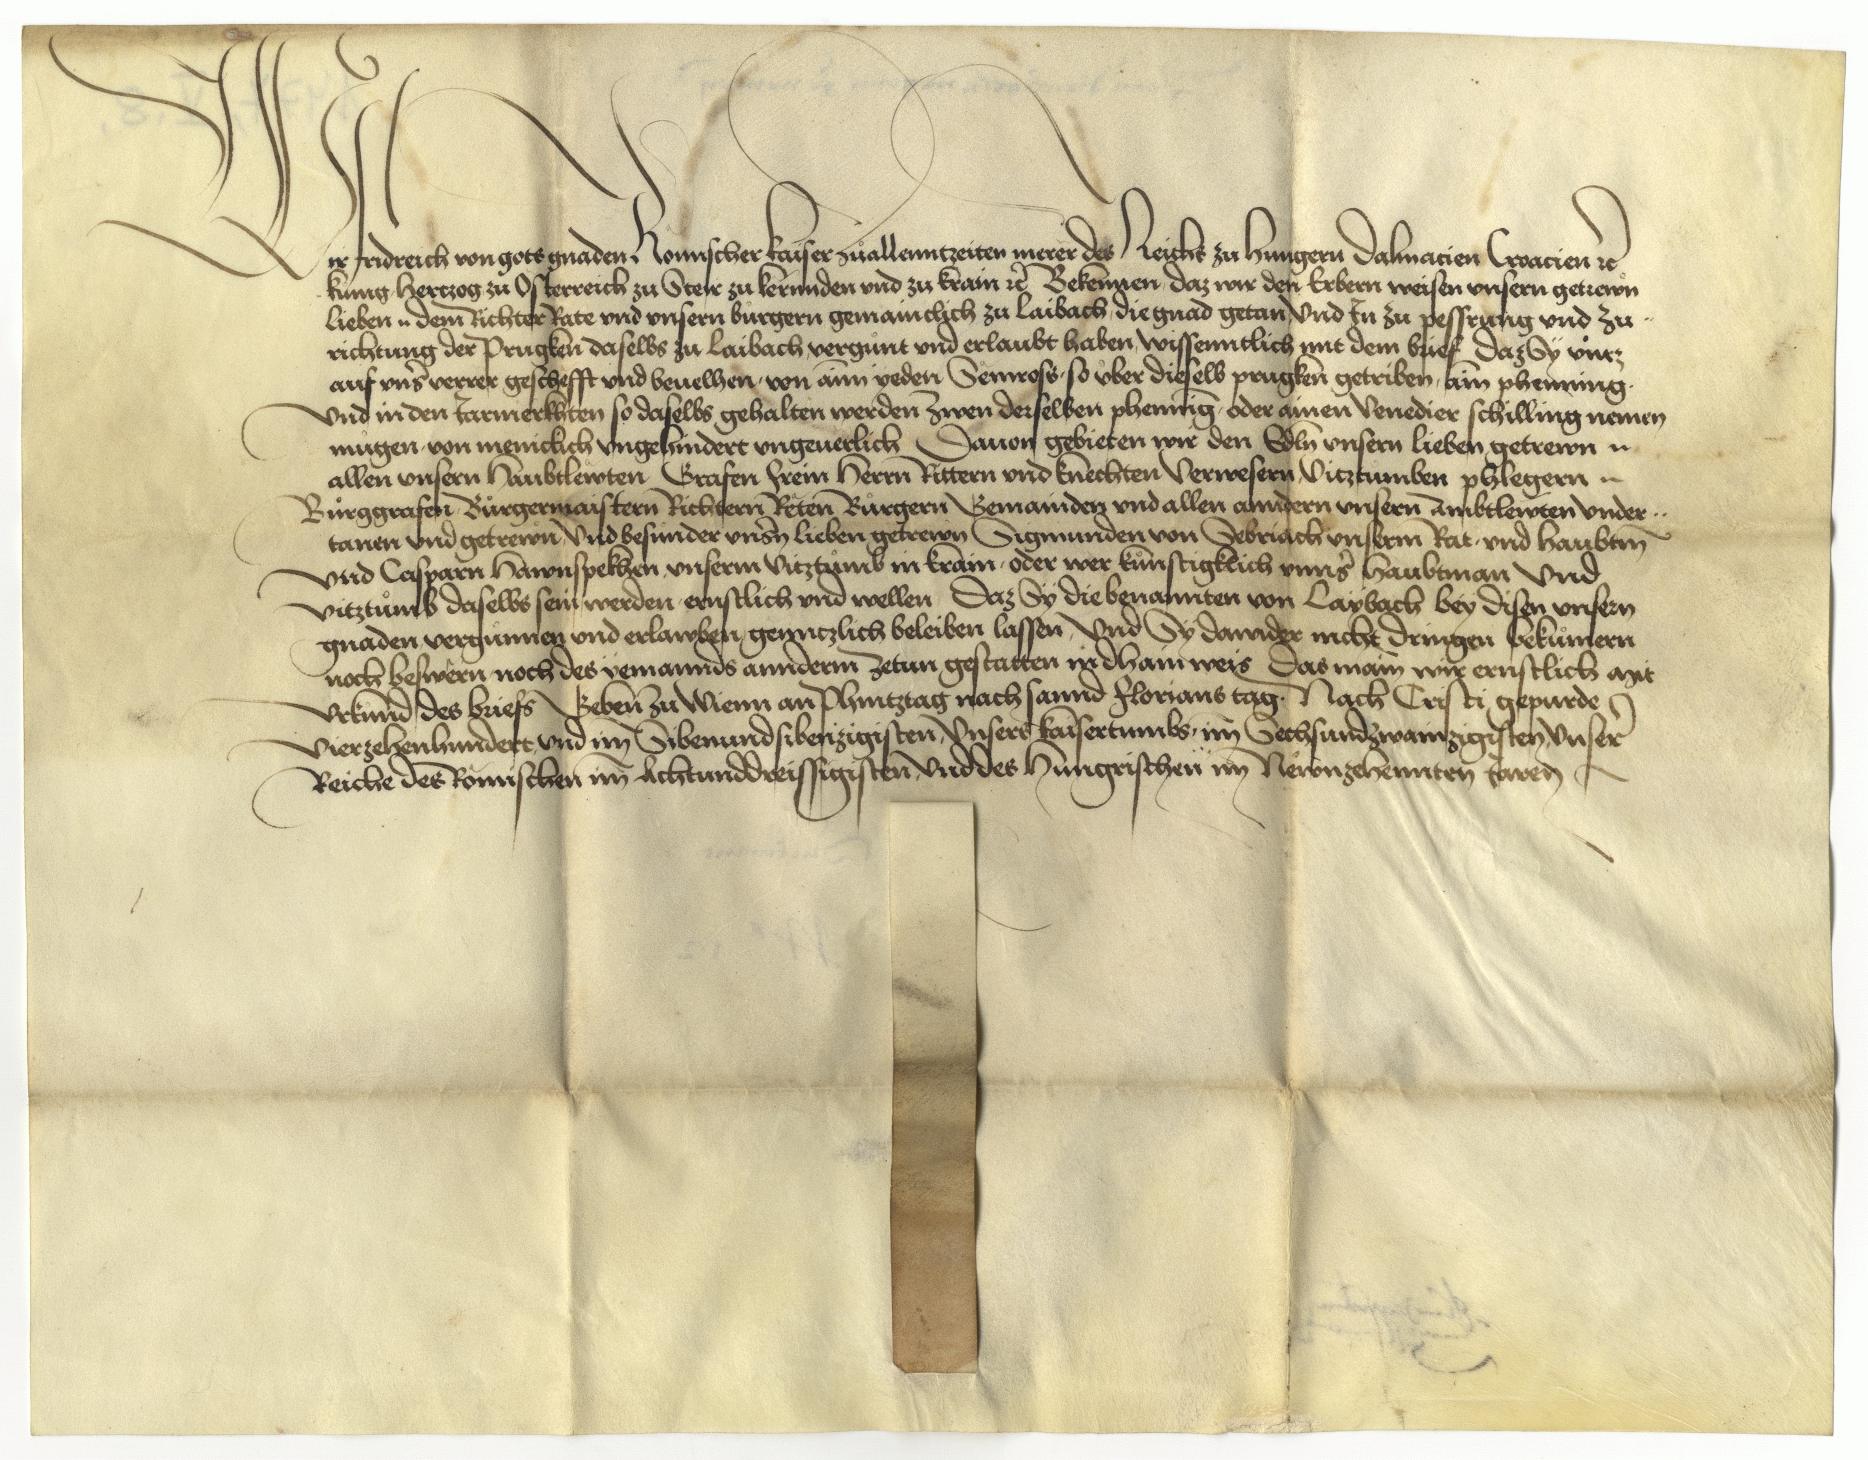 Wir Fridreich von gots gnaden Romischer kaiser zuallenntzeiten merer des Reichs zu Hungern Dalmacien Croacien ꝛc
kunig Hertzog zu Österreich zu Steir zu kernnden vnd zu krain ꝛc Bekennen daz wir den Erbern weisen vnsern getrewn
lieben .. dem Richter Rate vnd vnsern burgern gemainclich zu Laibach die gnad getan Vnd In zu pessrung vnd zu
richtung der Prugken daselbs zu Laibach vergunt vnd erlaubt haben wissenntlich mit dem brief Daz Sy vntz
auf vnser verrer geschefft vnd beuelhen von aim yeden Semross so vber dieselb prugken getriben ain phenning
Vnd in den Jarmerkhten so daselbs gehalten werden zwen derselben phennig oder ainen Venedier schilling nemen
mugen von meniclich vngehindert vngeuerlich Dauon gebieten wir den Edln vnsern lieben getrewn ..
allen vnsern Haubtlewten Grafen frein Herrn Rittern vnd knechten Verwesern Vitztumben phlegern ..
Burggrafen Burgermaistern Richtern Reten Burgern Gemainden vnd allen anndern vnsern ambtlewten vnder
tanen vnd getrewn Vnd besunder vnsern lieben getrewn Sigmunden von Sebriach vnserm Rat vnd Haubtm
Vnd Casparn Hawnspekhen vnserm Vitztumb in krain oder wer kunftigklich vnnser Haubtman Vnd
Vitztumb daselbs sein werden ernstlich vnd wellen Daz Sy die benannten von Laybach bey disen vnsern
gnaden vergunnen vnd erlawben genntzlich beleiben lassen Vnd Sy dawider nicht dringen bekumern
noch beswern noch des yemannds annderm zetun gestatten in dhain weis Das main wir ernstlich mit
Vrkund des briefs Geben zu Wienn an Phintztag nach sannd Florians tag Nach Cristi gepurde
Vierzehenhundert vnd im Sibenundsibenzigisten Vnsers kaisertumbs im Sechsundzwainzigisten Vnser
Reiche des Römischen im Achtunddreissigisten Vnd des Hungrischen im Newnzehennten Jaren